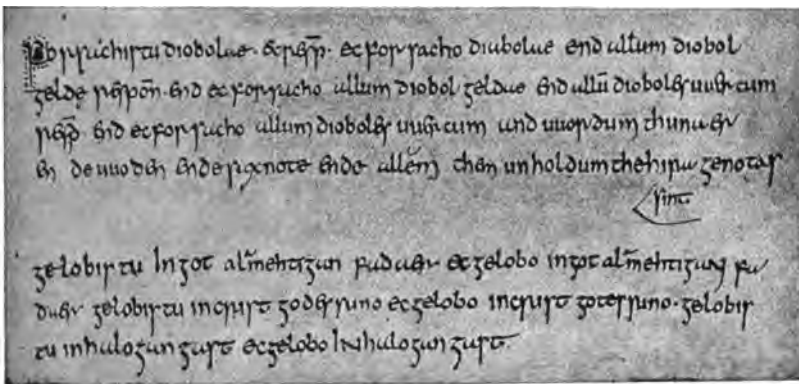 forsachistu diobolae· &resp̄· ec forsacho diabolae end allum diobol
gelde respoñ· end ec forsacho allum diobol geldae end allū dioboles uuercum
resp̄ end ec forsacho allum dioboles uuercum and uuordum thunaer
en de uuoden ende saxnote ende allem them unholdum thehira genotas
sint
gelobistu in got alamehtigan fadaer ec gelobo in got alamehtigan fa
daer gelobistu in crist godes suno ec gelobo in crist gotes suno· gelobis
tu in halogan gast ec gelobo in halogan gast·